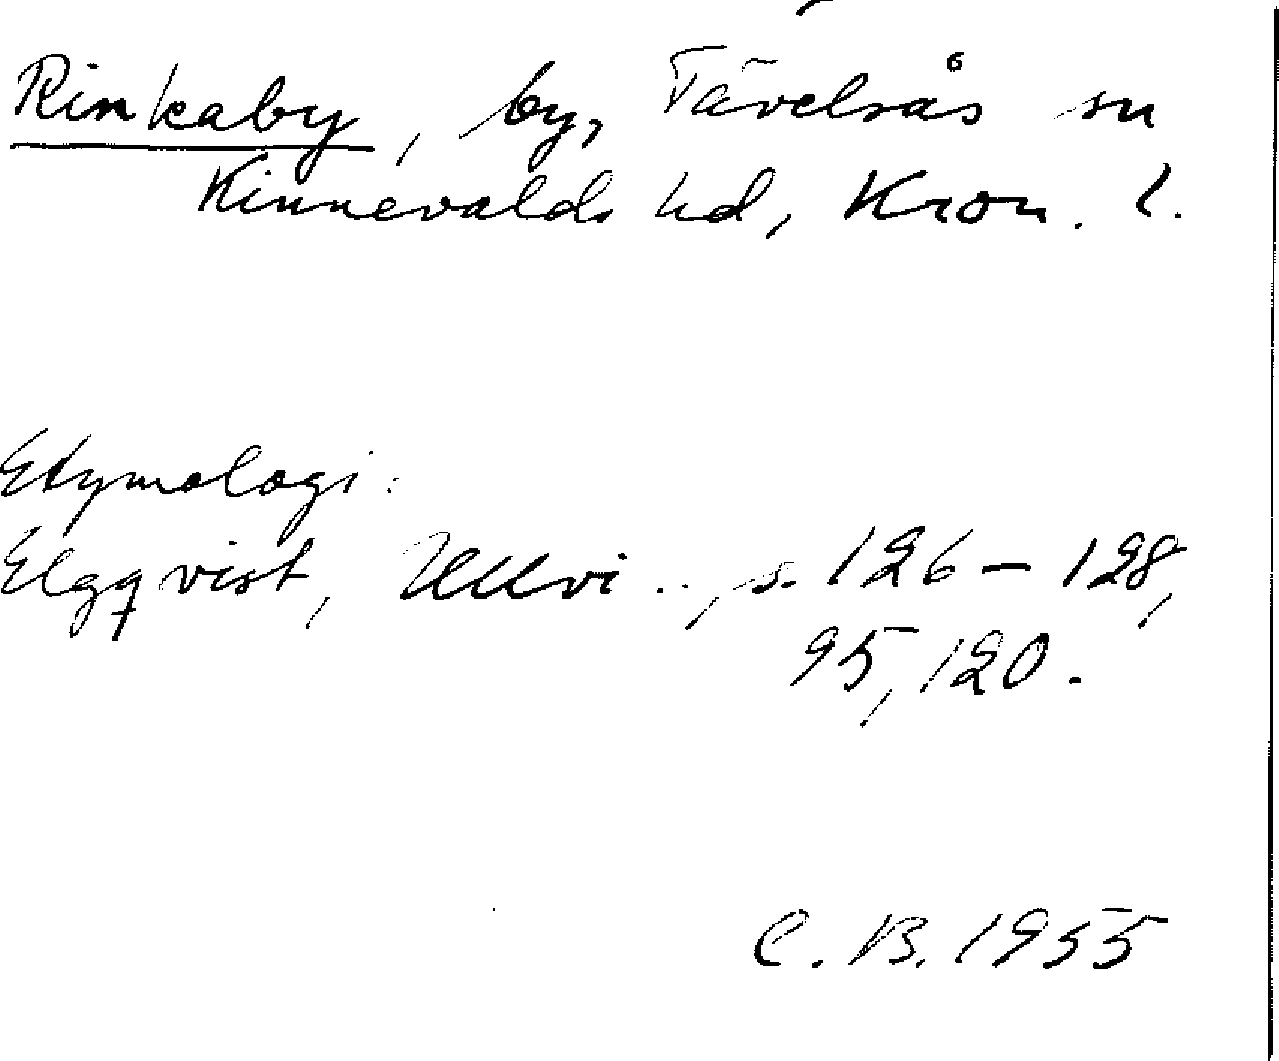 Rinkaby, by, Tävelsås sn
Kinnevalds hd, Kron. l.
Etymologi:
Elgqvist, Ullvi.., s. 126-128,
95, 120.
C. B. 1955